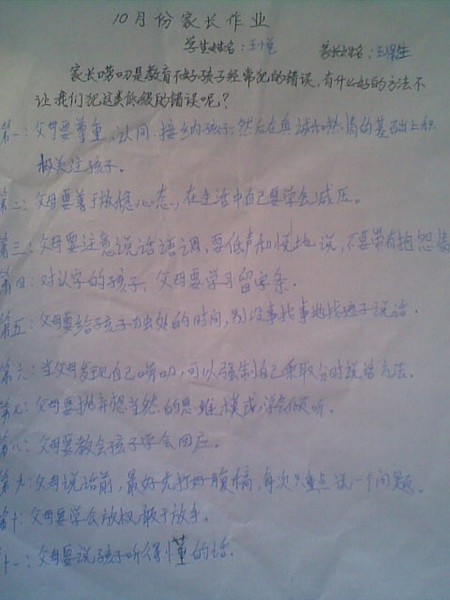 10月份家长作业
学生姓名：王悦 家长姓名：王保生
家长唠叨是教育不好孩子经常犯的错误，有什么好的方法不
让我们犯这类低级的错误呢？
第一：父母要尊重，认同，接纳孩子，然后在真诚和热情的基础上积
极关注孩子。
第二：父母要善于放松心态，在生活中自己要学会减压。
第三：父母要注意说话语调，要低声和悦地说，不要带有抱怨
第四：对认字的孩子，父母要学习留字条。
第五：父母要给孩子独处的时间，别没事找事地找孩子说话。
第六：当父母发现自己唠叨，可以强制自己采取分时段方法。
第七：父母要抛弃想当然的思维模式，学会倾听。
第八：父母要教会孩子学会回应。
第九：父母说话前，最好先打好腹稿，每次只重点谈一个问题。
第十：父母要学会放权，敢于放手。
十一：父母要说孩子听得懂的话。